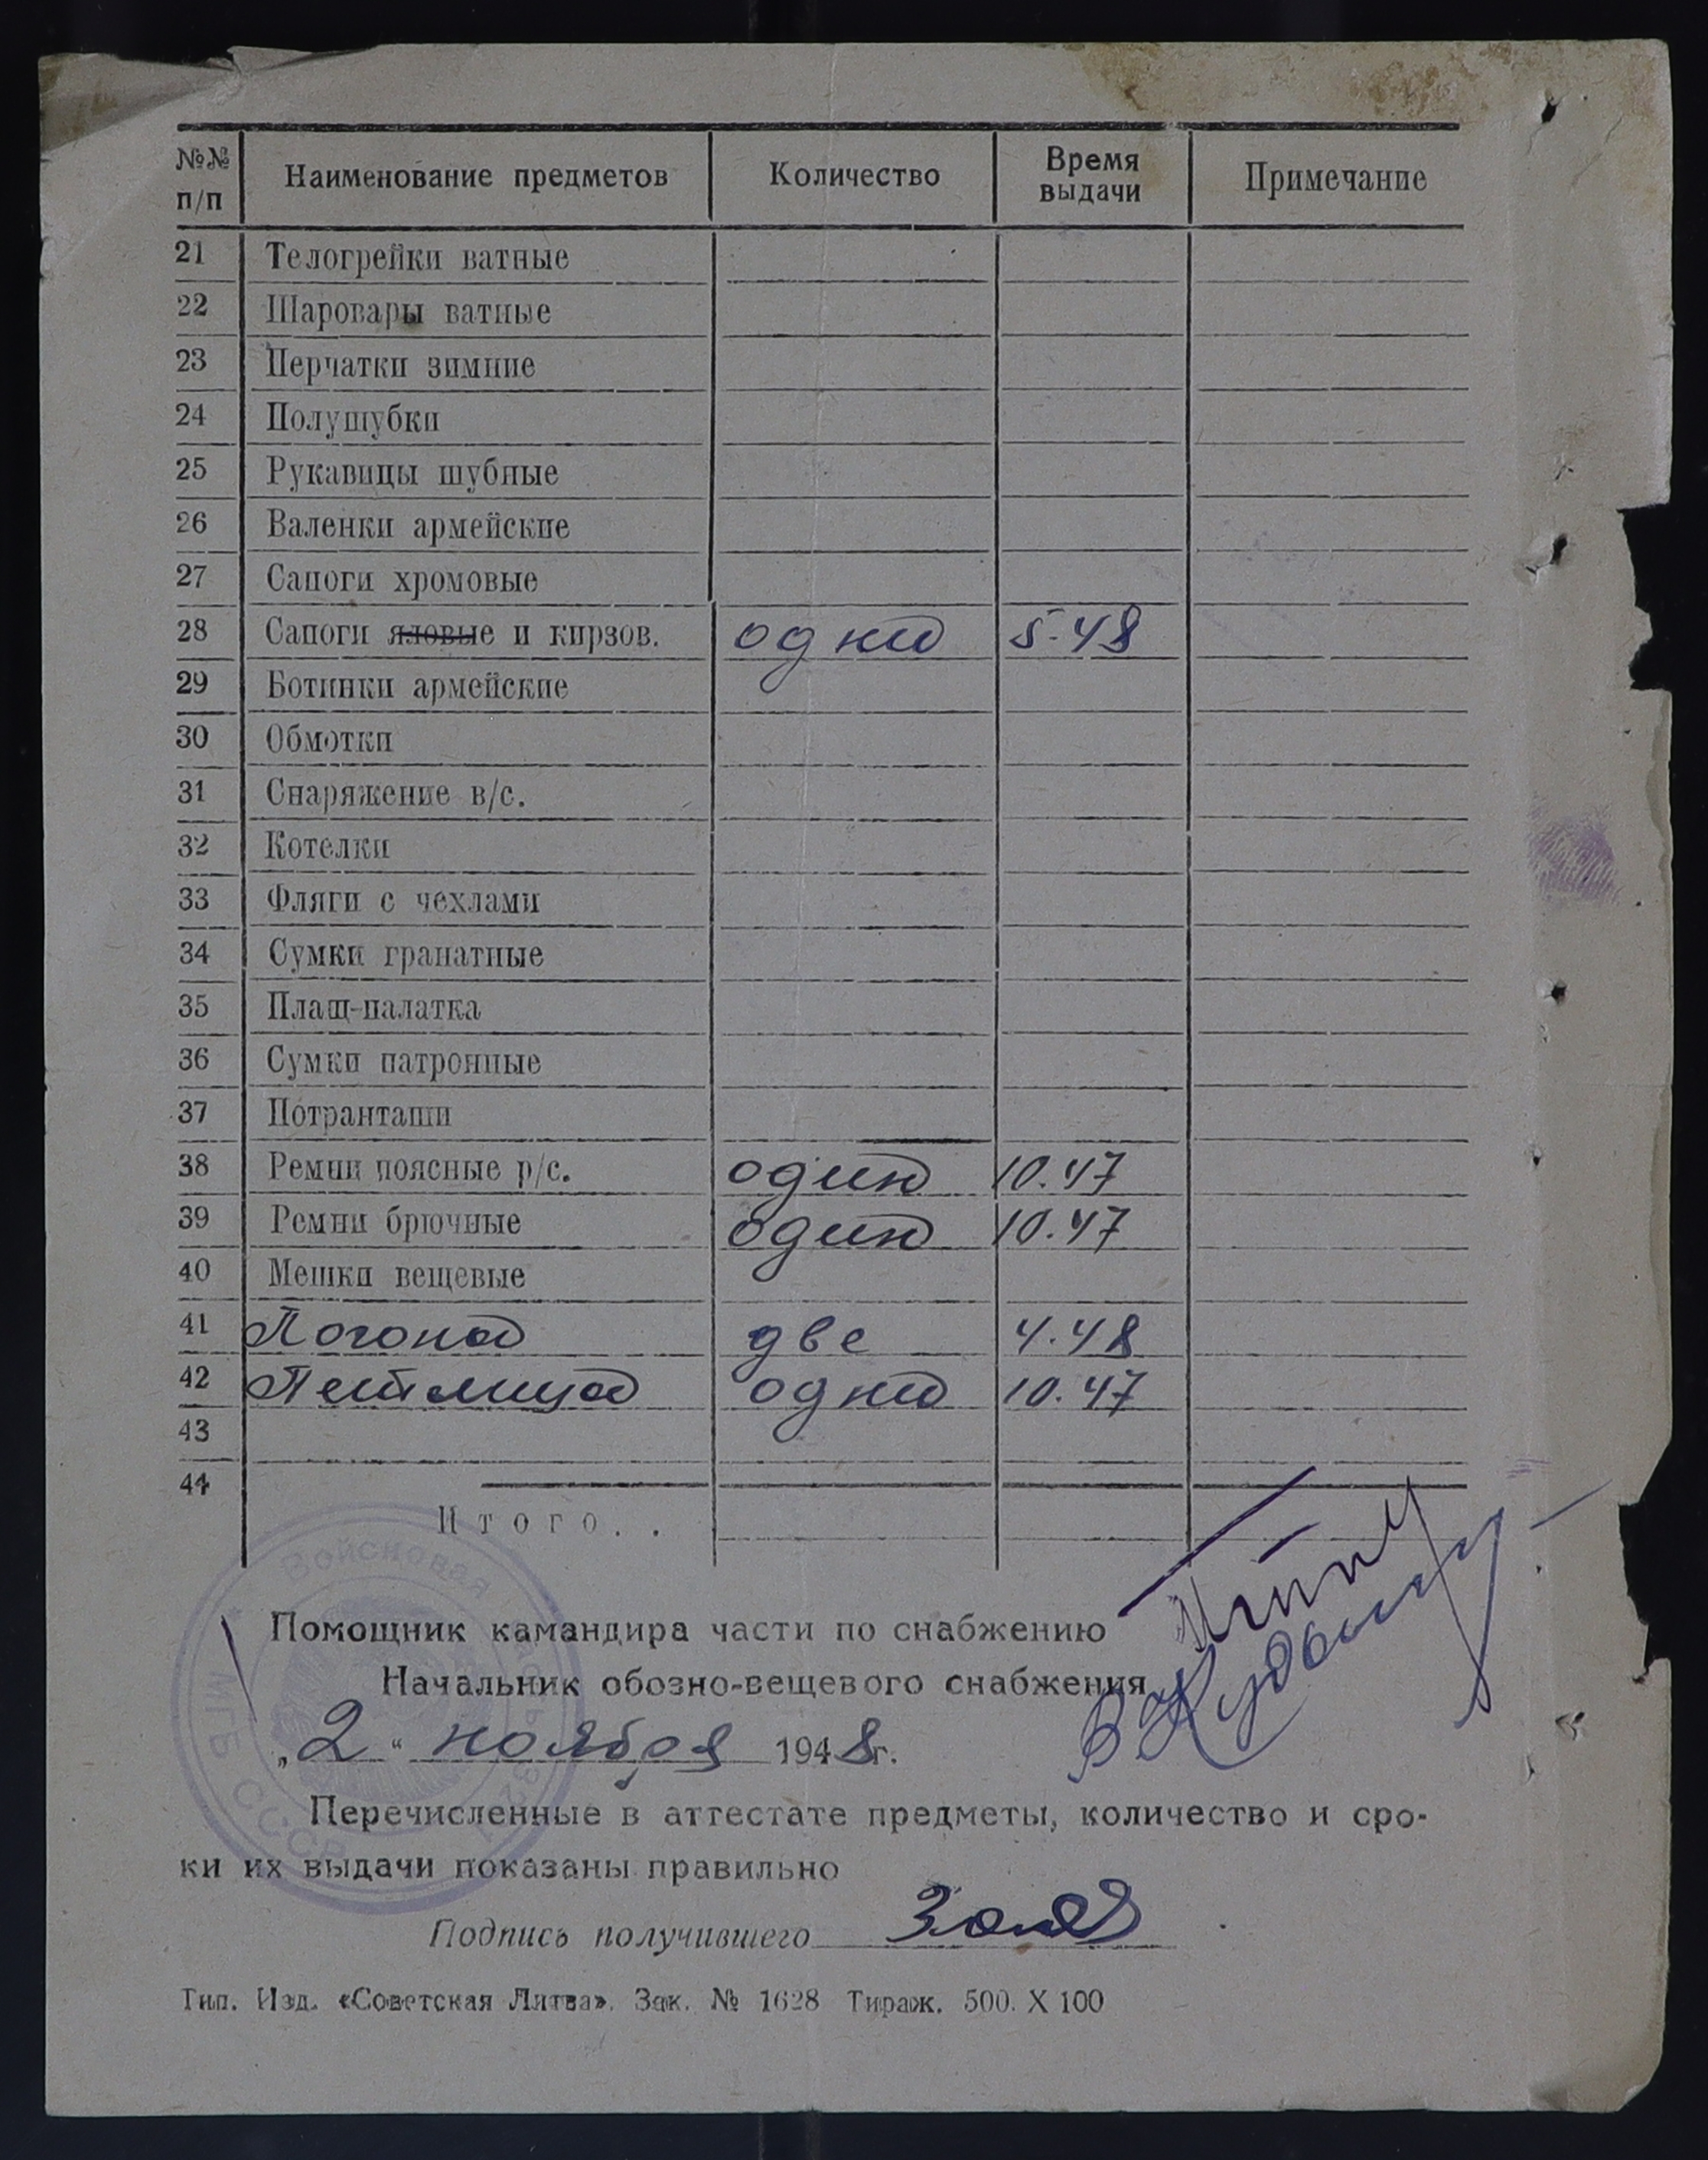 №№ п/п Наименование предметов Количество Время выдачи Примечание
21 Телогрейки ватные
22 Шаровары ватные
23 Перчатки зимние
24 Полушубки
25 Рукавицы шубные
26 Валенки армейские
27 Сапоги хромовые
28 Сапоги яловые и кирзов. одна 5-48
29 Ботинки армейские
30 Обмотки
31 Снаряжение в/с.
32 Котелки
33 Фляги с чехлами
34 Сумки гранатные
35 Плащ-палатка
36 Сумки патронные
37 Потранташи
38 Ремни поясные р/с. один 10.47
39 Ремни брючные один 10.47
40 Мешки вещевые
41 Погона две 4.48
42 Петлица одна 10.47
43
44
Итого..
Войсковая часть
МГБ СССР
Помощник камандира части по снабжению
Начальник обозно-вещевого снабжения
„2“ ноября 1948г.
Перечисленные в аттестате предметы, количество и сро-
ки их выдачи показаны правильно
Подпись получившего
Тип. Изд. «Советская Литва». Зак. № 1628 Тираж. 500 X 100